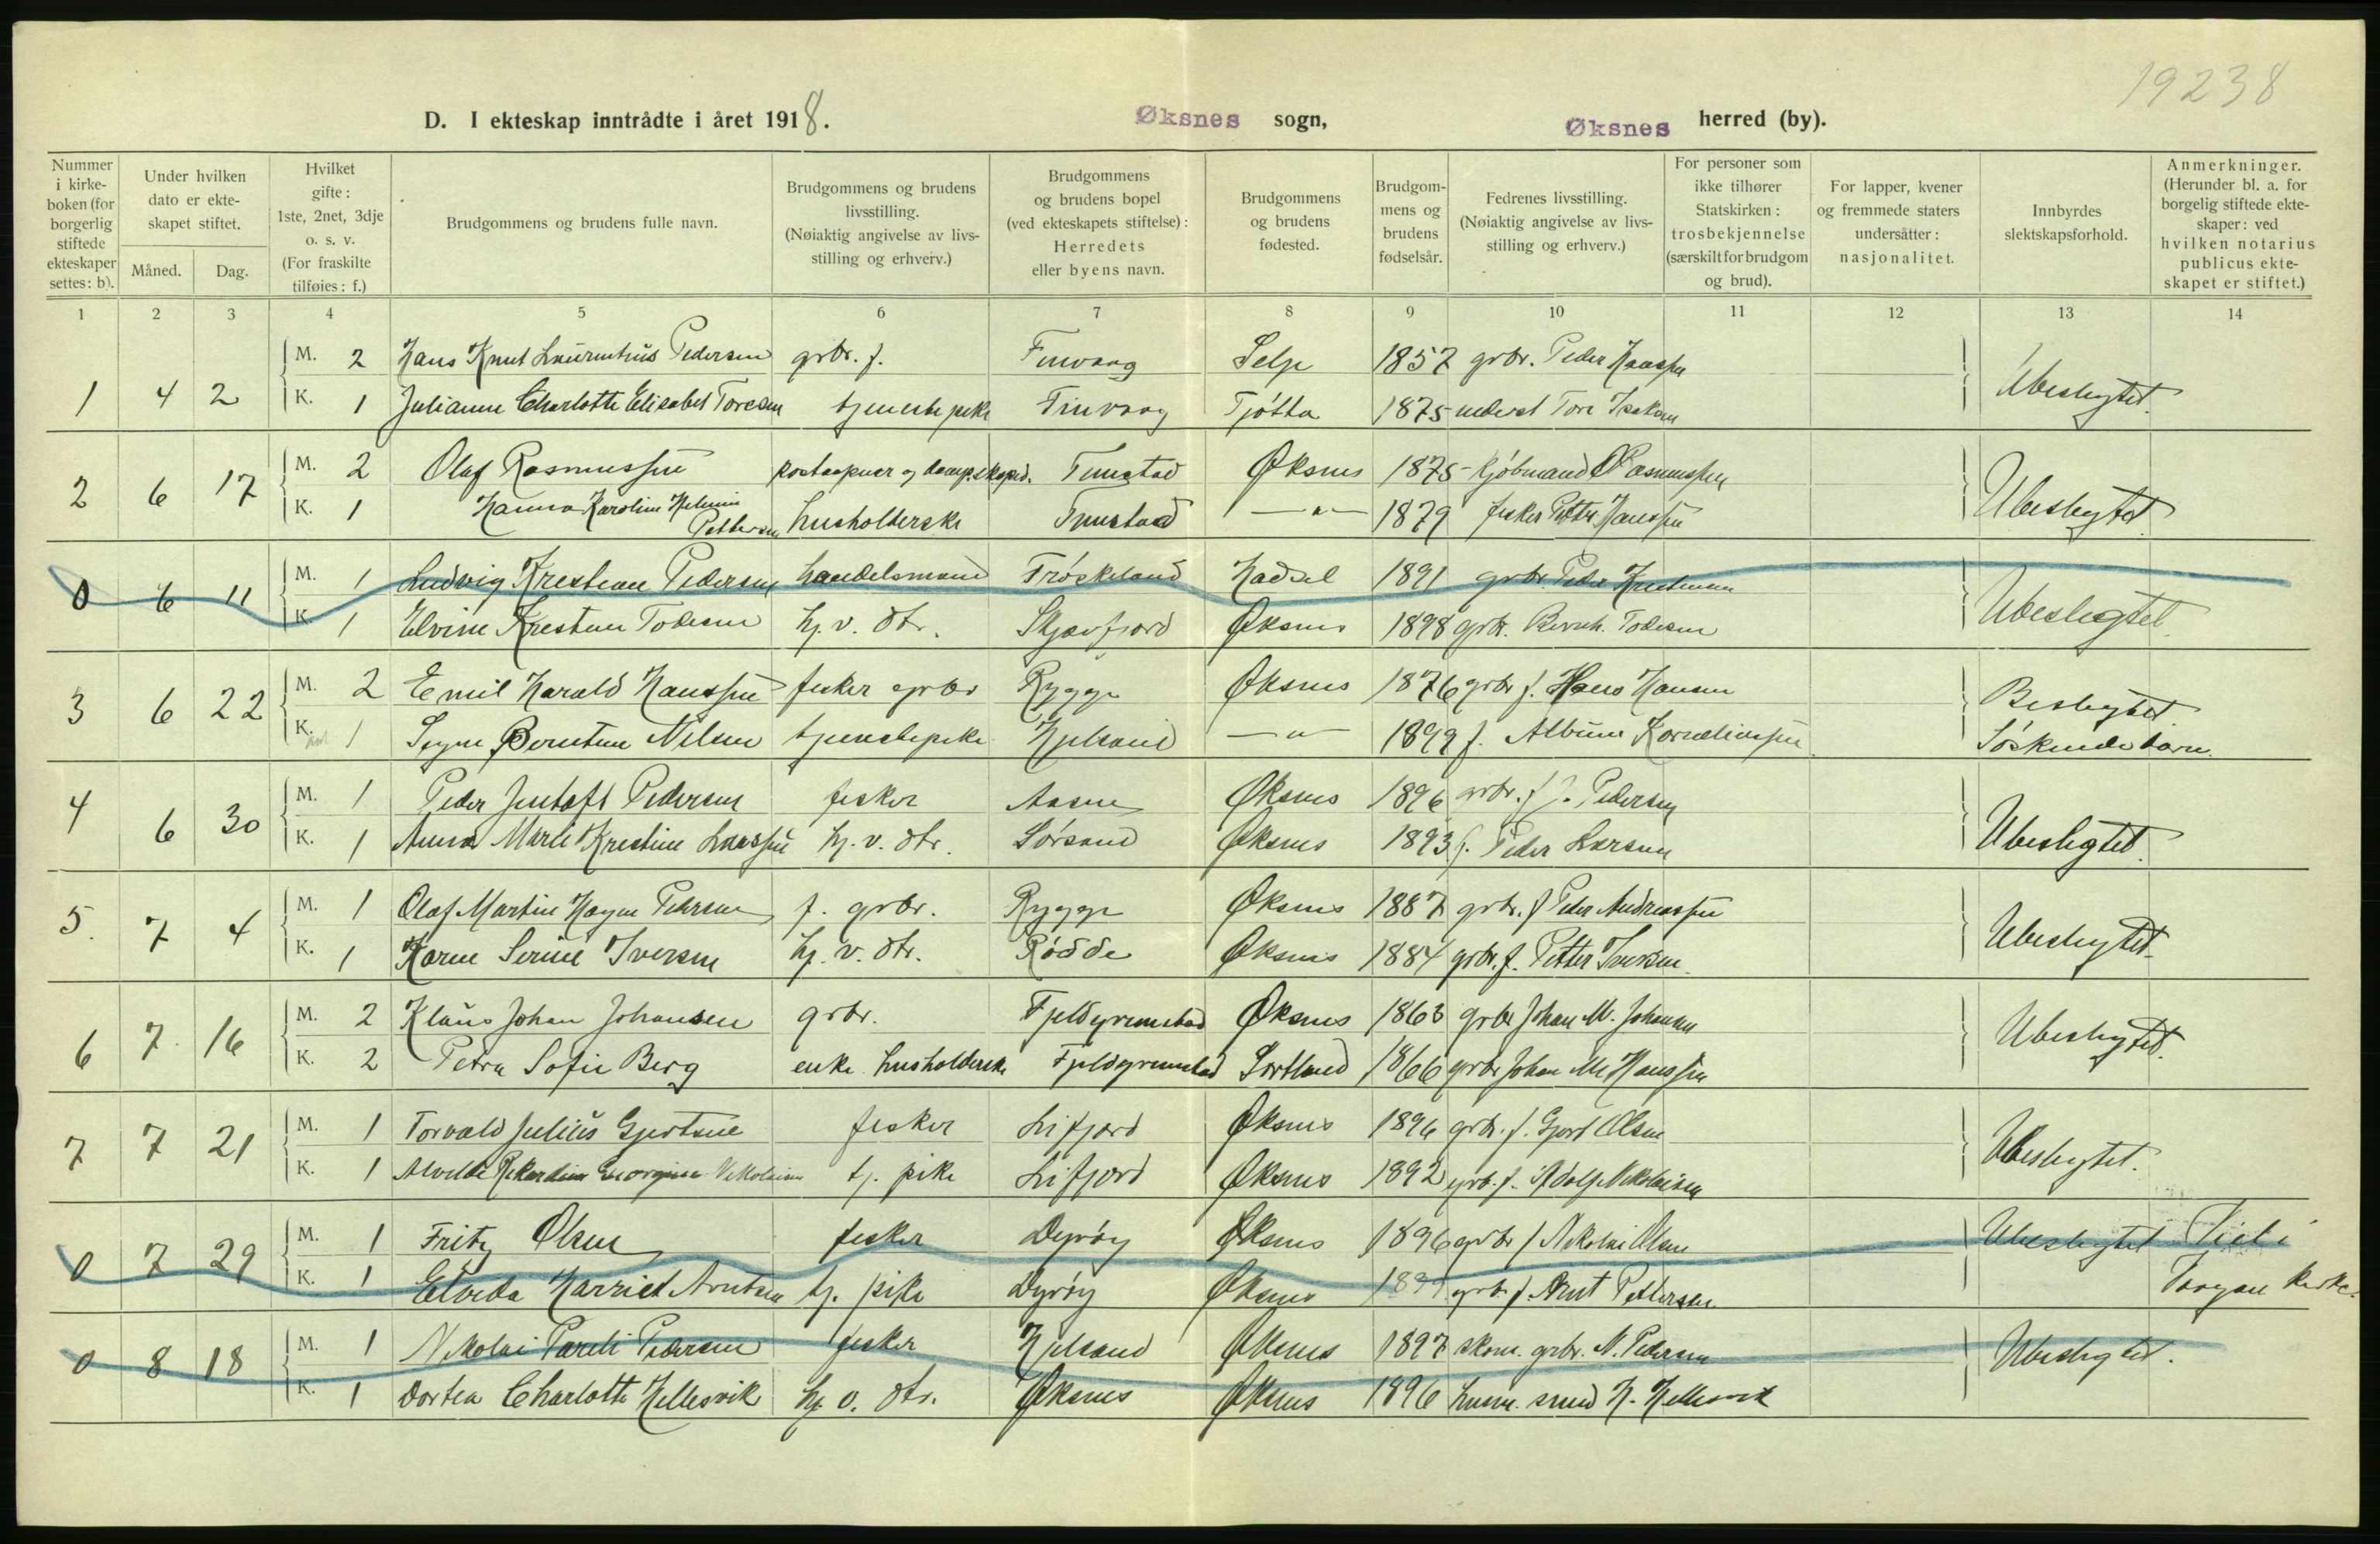 19238
D. I ekteskap inntrådte i året 1918. Øksnes sogn, Øksnes herred (by).
Nummer i kirke-boken (for borgerlig stiftede ekteskaper settes: b).
Under hvilken dato er ekte-skapet stiftet.
Måned. Dag.
Hvilket gifte: 1ste, 2net, 3dje o. s. v. (For fraskilte tilføies: f.)
Brudgommens og brudens fulle navn.
Brudgommens og brudens livsstilling. (Nøiaktig angivelse av livs-stilling og erhverv.)
Brudgommens og brudens bopel (ved ekteskapets stiftelse): Herredets eller byens navn.
Brudgommens og brudens fødested.
Brudgom-mens og brudens fødselsår.
Fedrenes livsstilling. (Nøiaktig angivelse av livs-stilling og erhverv.)
For personer som ikke tilhører Statskirken: trosbekjennelse (særskilt for brudgom og brud).
For lapper, kvener og fremmede staters undersåtter: nasjonalitet.
Innbyrdes slektskapsforhold.
Anmerkninger. (Herunder bl. a. for borgelig stiftede ekte-skaper: ved hvilken notarius publicus ekte-skapet er stiftet.)
1 2 3 4 5 6 7 8 9 10 11 12 13 14
1 4 2 M. 2 Hans Knut Laurentius Pedersen grbr. f. Finvaag Selje 1857 grbr. Peder Hanssen Ubeslegtet.
K. 1 Julianne Charlotte Elisabet Toresen tjenestepike Finvaag Tjøtta 1875 inderst Tore Isaksen
2 6 17 M. 2 Olaf Rasmussen postaapner og dampskexped. Tunstad Øksnes 1875 kjøbmand Rasmussen Ubeslegtet
K. 1 Hanna Karoline Helmine Pettersen husholderske Tunstad —"— 1879 fisker Petter Hanssen
0 6 11 M. 1 Ludvig Kristian Pedersen handelsmand Frøskeland Hadsel 1891 grbr. Peder Kristensen Ubeslegtet.
K. 1 Elvine Kristine Todesen hj. v. dtr. Skjævfjord Øksnes 1898 grbr. Bernh. Todesen
3 6 22 M. 2 Emil Harald Hanssen fisker grbr Rygge Øksnes 1876 grbr f. Hans Hansen Beslegtet.
K. 1 Signe Berntine Nilsen tjenestepike Hjelsand —"— 1899 f. Albium Korneliussen Søskendebarn.
4 6 30 M. 1 Peder Justoft Pedersen fisker Aasen Øksnes 1896 grbr. f J. Pedersen Ubeslegtet.
K. 1 Anna Marie Kristine Larssen hj. v. dtr. Sørsand Øksnes 1893 f. Peder Larsen
5. 7 4 M. 1 Olaf Martin Hagen Pedersen f. grbr. Rygge Øksnes 1887 grbr. f Peder Andreassen Ubeslegtet.
K. 1 Karen Serine Iversen hj. v. dtr. Rødde Øksnes 1884 grbr. f. Petter Iversen.
6 7 16 M. 2 Klaus Johan Johansen grbr. Fjeldgrimstad Øksnes 1863 grbr Johan M. Johansen Ubeslegtet.
K. 2 Petra Sofie Berg enke husholderske Fjeldgrimstad Sortland 1866 grbr Johan M Hanssen
7 7 21 M. 1 Torvald Julius Gjertsen fisker Lifjord Øksnes 1896 grbr. f. Gjert Olsen Ubeslegtet.
K. 1 Alvilde Rikardine Georgine Nikolaisen tj. pike Lifjord Øksnes 1892 grb. f. Adolf Nikolaisen
0 7 29 M. 1 Fritz Olsen fisker Dyrøy Øksnes 1896 grbr f Nikolai Olsen Ubeslegtet Viet i
K. 1 Elvida Harriet Arntsen tj. pike Dyrøy Øksnes grbr. f. Arnt Pettersen Vaagan kirke.
0 8 18 M. 1 Nikolai Pareli Pedersen fisker Hjelsand Øksnes 1897 skom. grbr. N. Pedersen Ubeslegtet.
K. 1 Dortea Charlotte Hellesvik hj. v. dtr. Øksnes Øksnes 1896 husm. smed H. Hellesvik